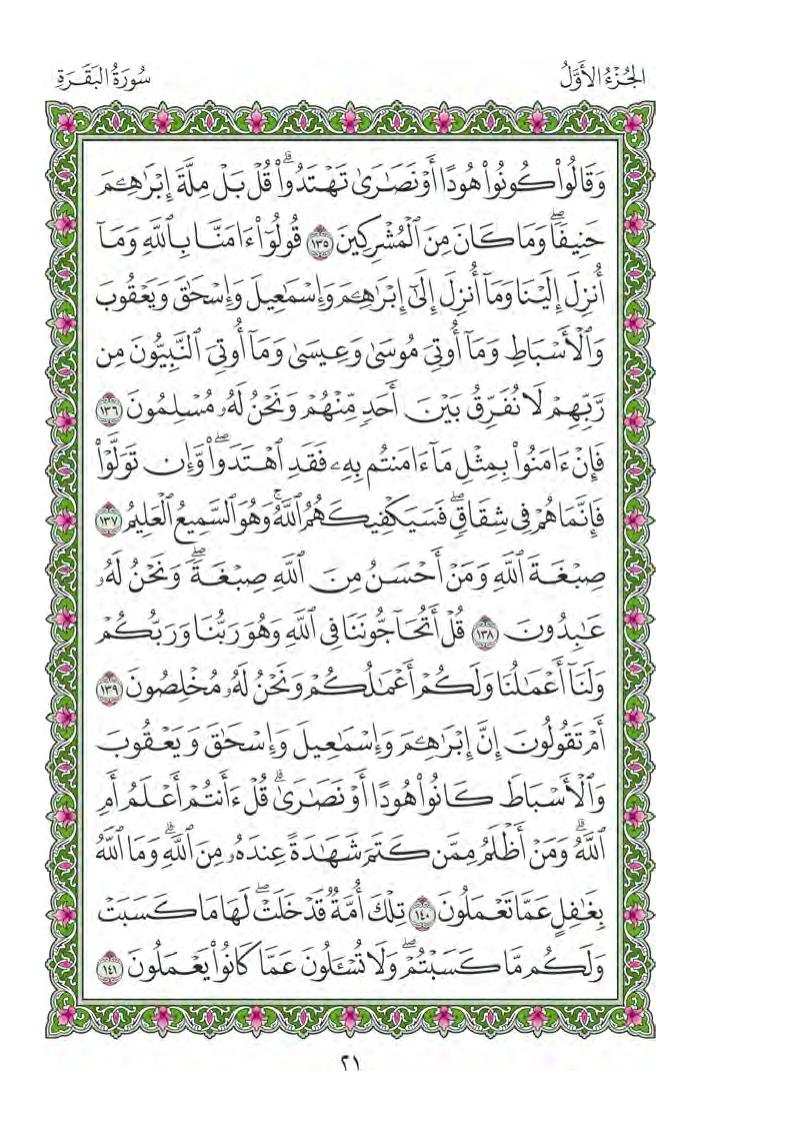 الجُزْءُ الأَوَّلُ
سُورَةُ البَقَرَةِ
وَقَالُوا۟ كُونُوا۟ هُودًا أَوْ نَصَـٰرَىٰ تَهْتَدُوا۟ ۗ قُلْ بَلْ مِلَّةَ إِبْرَٰهِـۧمَ
حَنِيفًا ۖ وَمَا كَانَ مِنَ ٱلْمُشْرِكِينَ ١٣٥ قُولُوٓا۟ ءَامَنَّا بِٱللَّهِ وَمَآ
أُنزِلَ إِلَيْنَا وَمَآ أُنزِلَ إِلَىٰٓ إِبْرَٰهِـۧمَ وَإِسْمَـٰعِيلَ وَإِسْحَـٰقَ وَيَعْقُوبَ
وَٱلْأَسْبَاطِ وَمَآ أُوتِىَ مُوسَىٰ وَعِيسَىٰ وَمَآ أُوتِىَ ٱلنَّبِيُّونَ مِن
رَّبِّهِمْ لَا نُفَرِّقُ بَيْنَ أَحَدٍ مِّنْهُمْ وَنَحْنُ لَهُۥ مُسْلِمُونَ ١٣٦
فَإِنْ ءَامَنُوا۟ بِمِثْلِ مَآ ءَامَنتُم بِهِۦ فَقَدِ ٱهْتَدَوا۟ ۖ وَّإِن تَوَلَّوْا۟
فَإِنَّمَا هُمْ فِى شِقَاقٍ ۖ فَسَيَكْفِيكَهُمُ ٱللَّهُ ۚ وَهُوَ ٱلسَّمِيعُ ٱلْعَلِيمُ ١٣٧
صِبْغَةَ ٱللَّهِ وَمَنْ أَحْسَنُ مِنَ ٱللَّهِ صِبْغَةً ۖ وَنَحْنُ لَهُۥ
عَـٰبِدُونَ ١٣٨ قُلْ أَتُحَآجُّونَنَا فِى ٱللَّهِ وَهُوَ رَبُّنَا وَرَبُّكُمْ
وَلَنَآ أَعْمَـٰلُنَا وَلَكُمْ أَعْمَـٰلُكُمْ وَنَحْنُ لَهُۥ مُخْلِصُونَ ١٣٩
أَمْ تَقُولُونَ إِنَّ إِبْرَٰهِـۧمَ وَإِسْمَـٰعِيلَ وَإِسْحَـٰقَ وَيَعْقُوبَ
وَٱلْأَسْبَاطَ كَانُوا۟ هُودًا أَوْ نَصَـٰرَىٰ ۗ قُلْ ءَأَنتُمْ أَعْلَمُ أَمِ
ٱللَّهُ ۗ وَمَنْ أَظْلَمُ مِمَّن كَتَمَ شَهَـٰدَةً عِندَهُۥ مِنَ ٱللَّهِ ۗ وَمَا ٱللَّهُ
بِغَـٰفِلٍ عَمَّا تَعْمَلُونَ ١٤٠ تِلْكَ أُمَّةٌ قَدْ خَلَتْ ۖ لَهَا مَا كَسَبَتْ
وَلَكُم مَّا كَسَبْتُمْ ۖ وَلَا تُسْـَٔلُونَ عَمَّا كَانُوا۟ يَعْمَلُونَ ١٤١
٢١